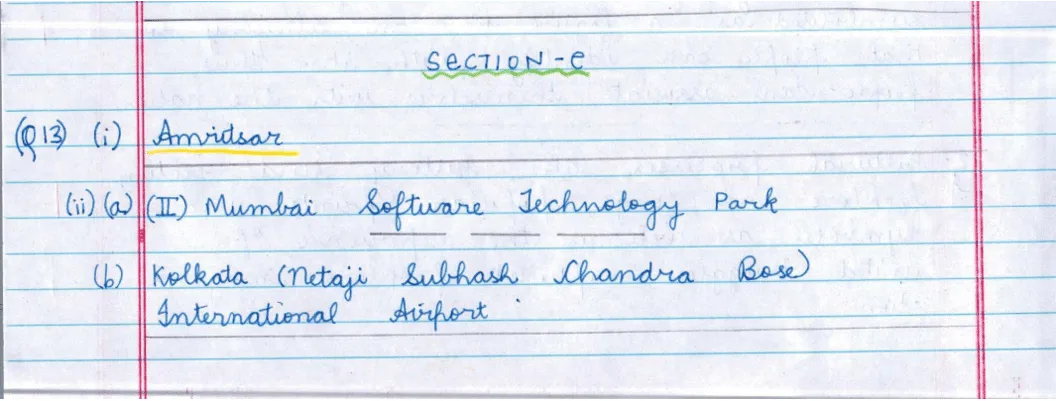 SECTION-C
(Q13) (i) Amritsar
(ii) (a) (II) Mumbai Software Technology Park
(b) Kolkata (Netaji Subhash Chandra Bose)
International Airport